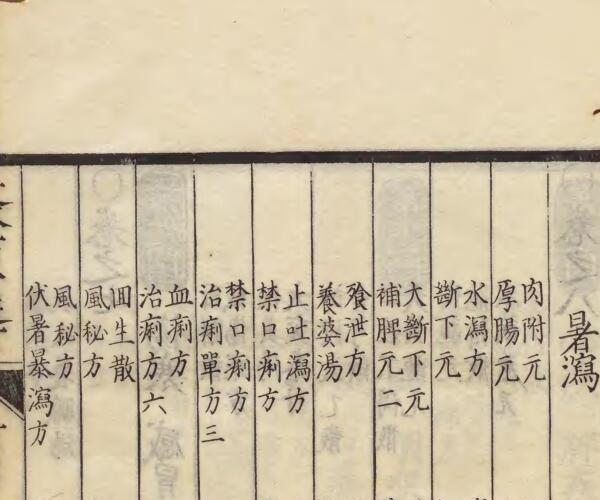 暑瀉
肉附元
厚腸元
水瀉方
斷下元
大斷下元
補脾元二
飱泄方
養婆湯
止吐瀉方
禁口痢方
禁口痢方
治痢單方三
血痢方
治痢方六
回生散
風秘方
風秘方
伏暑暴瀉方